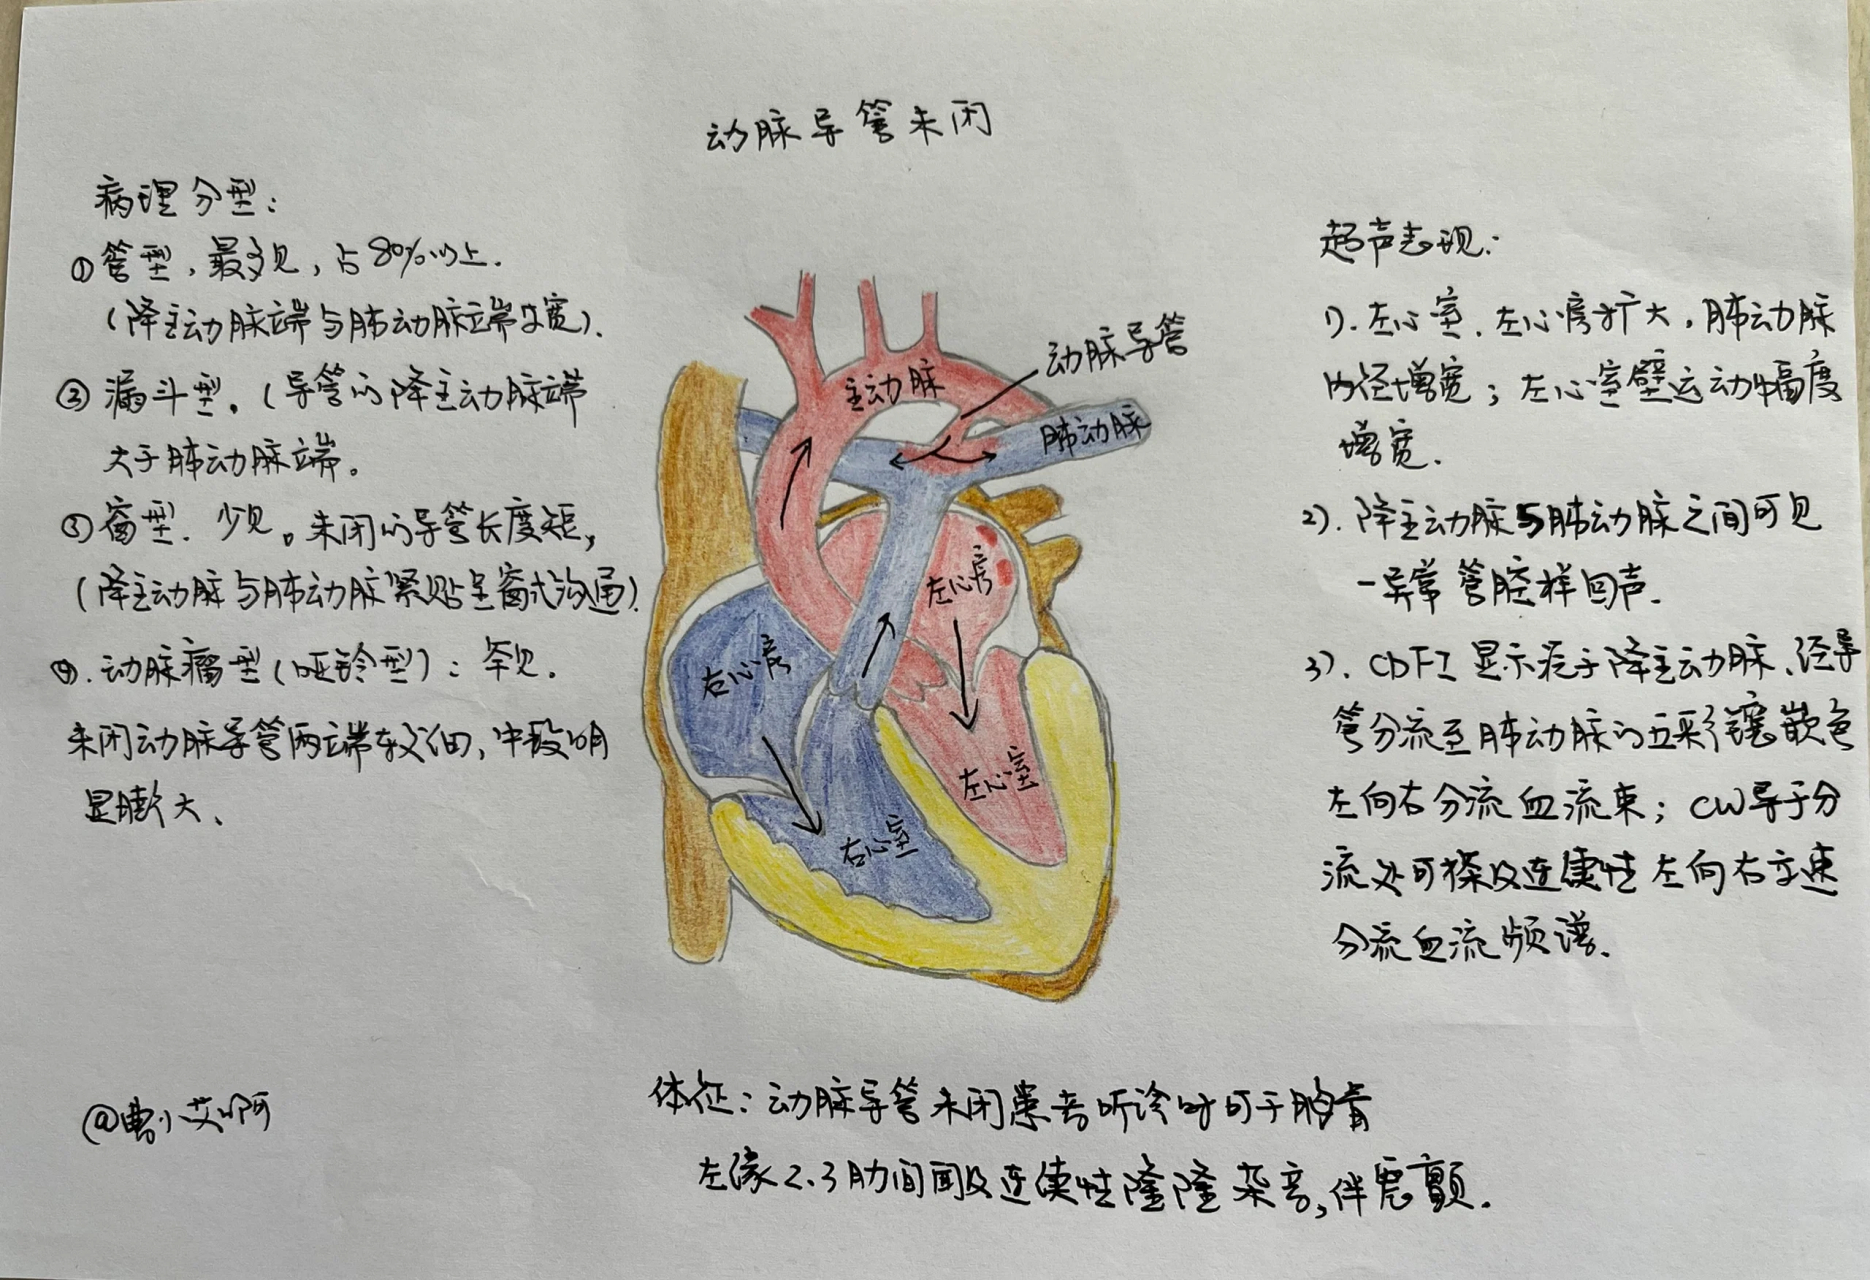 动脉导管未闭
病理分型：
①管型，最多见，占80%以上.
（降主动脉端与肺动脉端等宽）.
② 漏斗型。（导管的降主动脉端
大于肺动脉端。
③窗型. 少见。未闭的导管长度短，
（降主动脉与肺动脉紧贴呈窗式沟通）.
④. 动脉瘤型（哑铃型）：罕见.
未闭动脉导管两端较细，中段明
显膨大、
主动脉
动脉导管
肺动脉
左心房
右心房
左心室
右心室
超声表现：
1）. 左心室. 左心房扩大，肺动脉
内径增宽；左心室壁运动幅度
增宽.
2）. 降主动脉与肺动脉之间可见
一异常管腔样回声.
3）. CDFI 显示起于降主动脉、经导
管分流至肺动脉的五彩镶嵌色
左向右分流血流束；CW于分
流处可探及连续性左向右高速
分流血流频谱.
体征：动脉导管未闭患者听诊时可于胸骨
左缘2、3肋间闻及连续性隆隆杂音，伴震颤.
@曹小艾啊